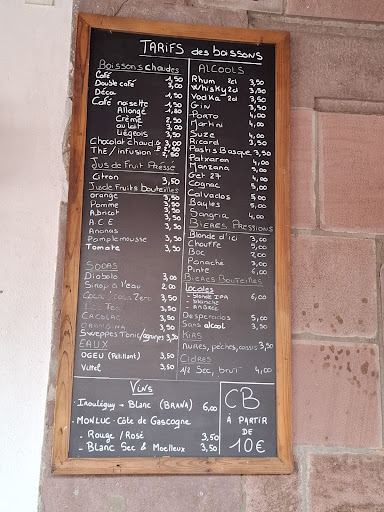 TARIFS des boissons
Boissons chaudes
Café 1,50
Double café 3,00
Déca 1,50
Café noisette 1,50
Allongé 1,80
Crème 2,50
au lait 3,00
Liégeois 3,50
Chocolat chaud
Thé / infusion
Jus de Fruit Pressé
Citron 3,50
Jus de Fruits bouteilles
orange 3,50
Pomme 3,50
Abricot 3,50
A.C.E 3,50
Ananas 3,50
Pamplemousse 3,50
Tomate 3,50
SODAS
Diabolo 3,00
Sirop à l'eau 2,00
Zero 3,50
3,50
3,50
ORANGINA 3,50
Sweppes Tonic/agrumes 3,50
EAUX
OGEU (Pétillant) 3,50
Vittel 3,50
ALCOOLS
Rhum 2cl 3,50
Whisky 2cl 3,50
Vodka 2cl 3,50
Gin 3,50
Porto 4,00
Martini 4,00
Suze 4,00
Ricard 3,50
Pastis Basque 3,50
Patxaran 4,00
Manzana 3,50
Get 27 4,00
Cognac 4,00
Calvados 5,00
Bayles 5,00
Sangria 4,00
Bières Pressions
Blonde d'ici 3,00
Chouffe 5,00
Boc 2,00
Panaché 3,00
Pinte 6,00
Bières Bouteilles
Locales
- blonde IPA 6,00
- blanche
- ambrée
Desperados 5,00
Sans alcool 3,50
Kirs
mûres, pêches, cassis 3,50
Cidres
1/2 Sec, brut 4,00
Vins
- Irouléguy - Blanc (BRANA) 6,00
- MONLUC - Côte de Gascogne
- Rouge / Rosé 3,50
- Blanc Sec & Moelleux 3,50
CB
À PARTIR
DE
10€